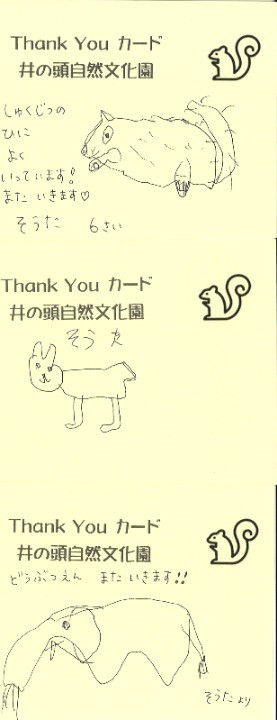 Thank You カード
井の頭自然文化園
しゅくじつの
ひに
よく
いっています!
また いきます♡
そうた 6さい
Thank You カード
井の頭自然文化園
そう た
Thank You カード
井の頭自然文化園
どうぶつえん また いきます!!
そうた より